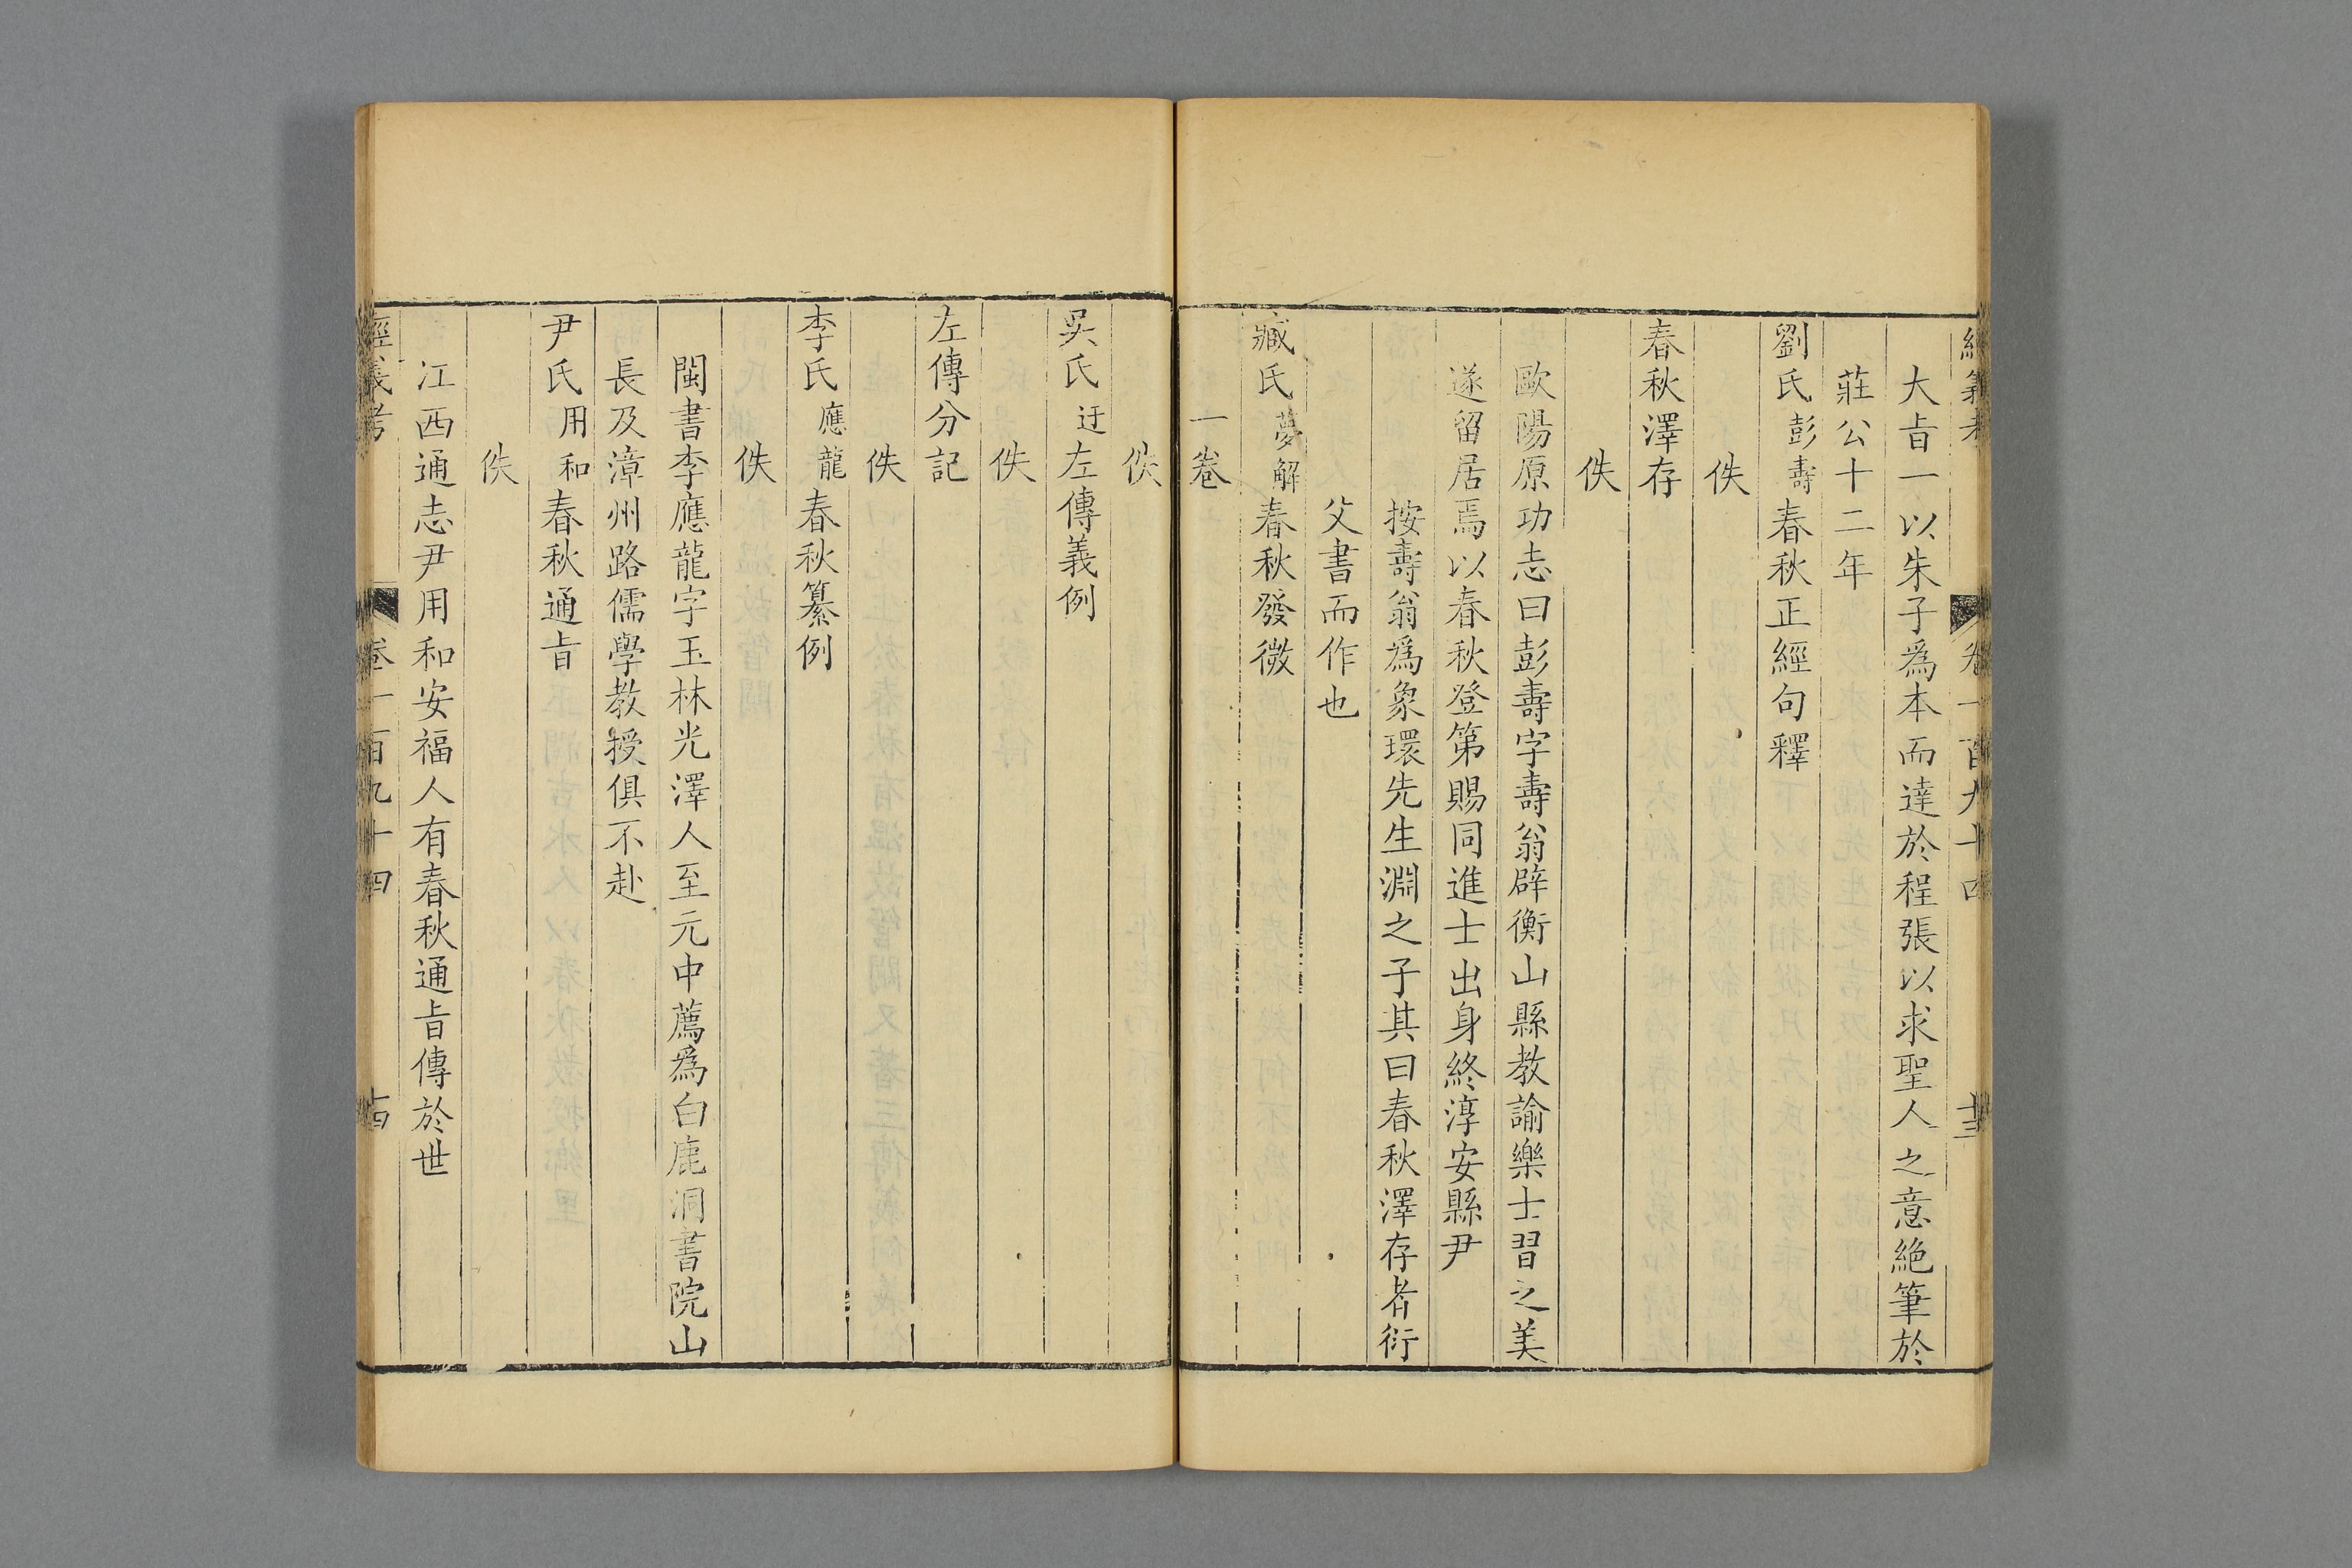 經義考 卷一百九十四 十三
大旨一以朱子爲本而達於程張以求聖人之意絶筆於
莊公十二年
劉氏彭壽春秋正經句釋
佚
春秋澤存
佚
歐陽原功志曰彭壽字壽翁辟衡山縣教諭樂士習之美
遂留居焉以春秋登第賜同進士出身終淳安縣尹
按壽翁爲象環先生淵之子其曰春秋澤存者衍
父書而作也
臧氏夢解春秋發微
一卷
佚
吳氏迂左傳義例
佚
左傳分記
佚
李氏應龍春秋纂例
佚
閩書李應龍字玉林光澤人至元中薦爲白鹿洞書院山
長及漳州路儒學教授俱不赴
尹氏用和春秋通旨
佚
江西通志尹用和安福人有春秋通旨傳於世
經義考 卷一百九十四 十四